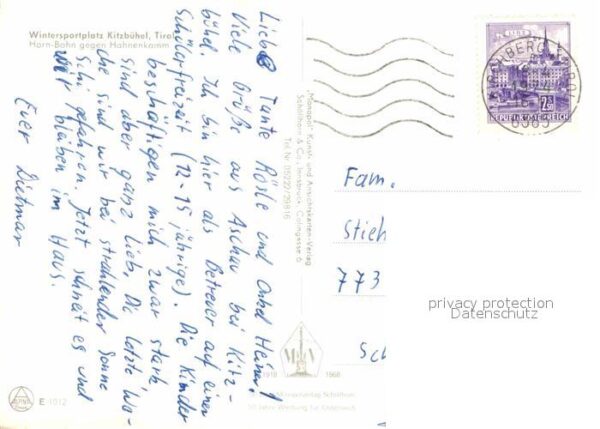 Wintersportplatz Kitzbühel, Tirol
Horn-Bahn gegen Hahnenkamm
Liebe Tante Rösle und Onkel Heiner!
Viele Grüße aus Aschau bei Kitz-
bühel. Ich bin hier als Betreuer auf einer
Schülerfreizeit (12-15 jährige). Die Kinder
beschäftigen mich zwar stark,
sind aber ganz lieb. Die letzte Wo-
che sind wir bei strahlender Sonne
Schi gefahren. Jetzt schneit es und
wir bleiben im Haus.
Euer Dietmar
"Monopol" Kunst- und Ansichtskarten-Verlag
Schöllhorn & Co., Innsbruck, Colingasse 6
Tel. Nr. 05222/29816
LINZ
2.50
REPUBLIK ÖSTERREICH
6365
Fam.
Stieh
773
Sc
privacy protection
Datenschutz
1918
1968
50 Jahre Werbung für Österreich
E-1012